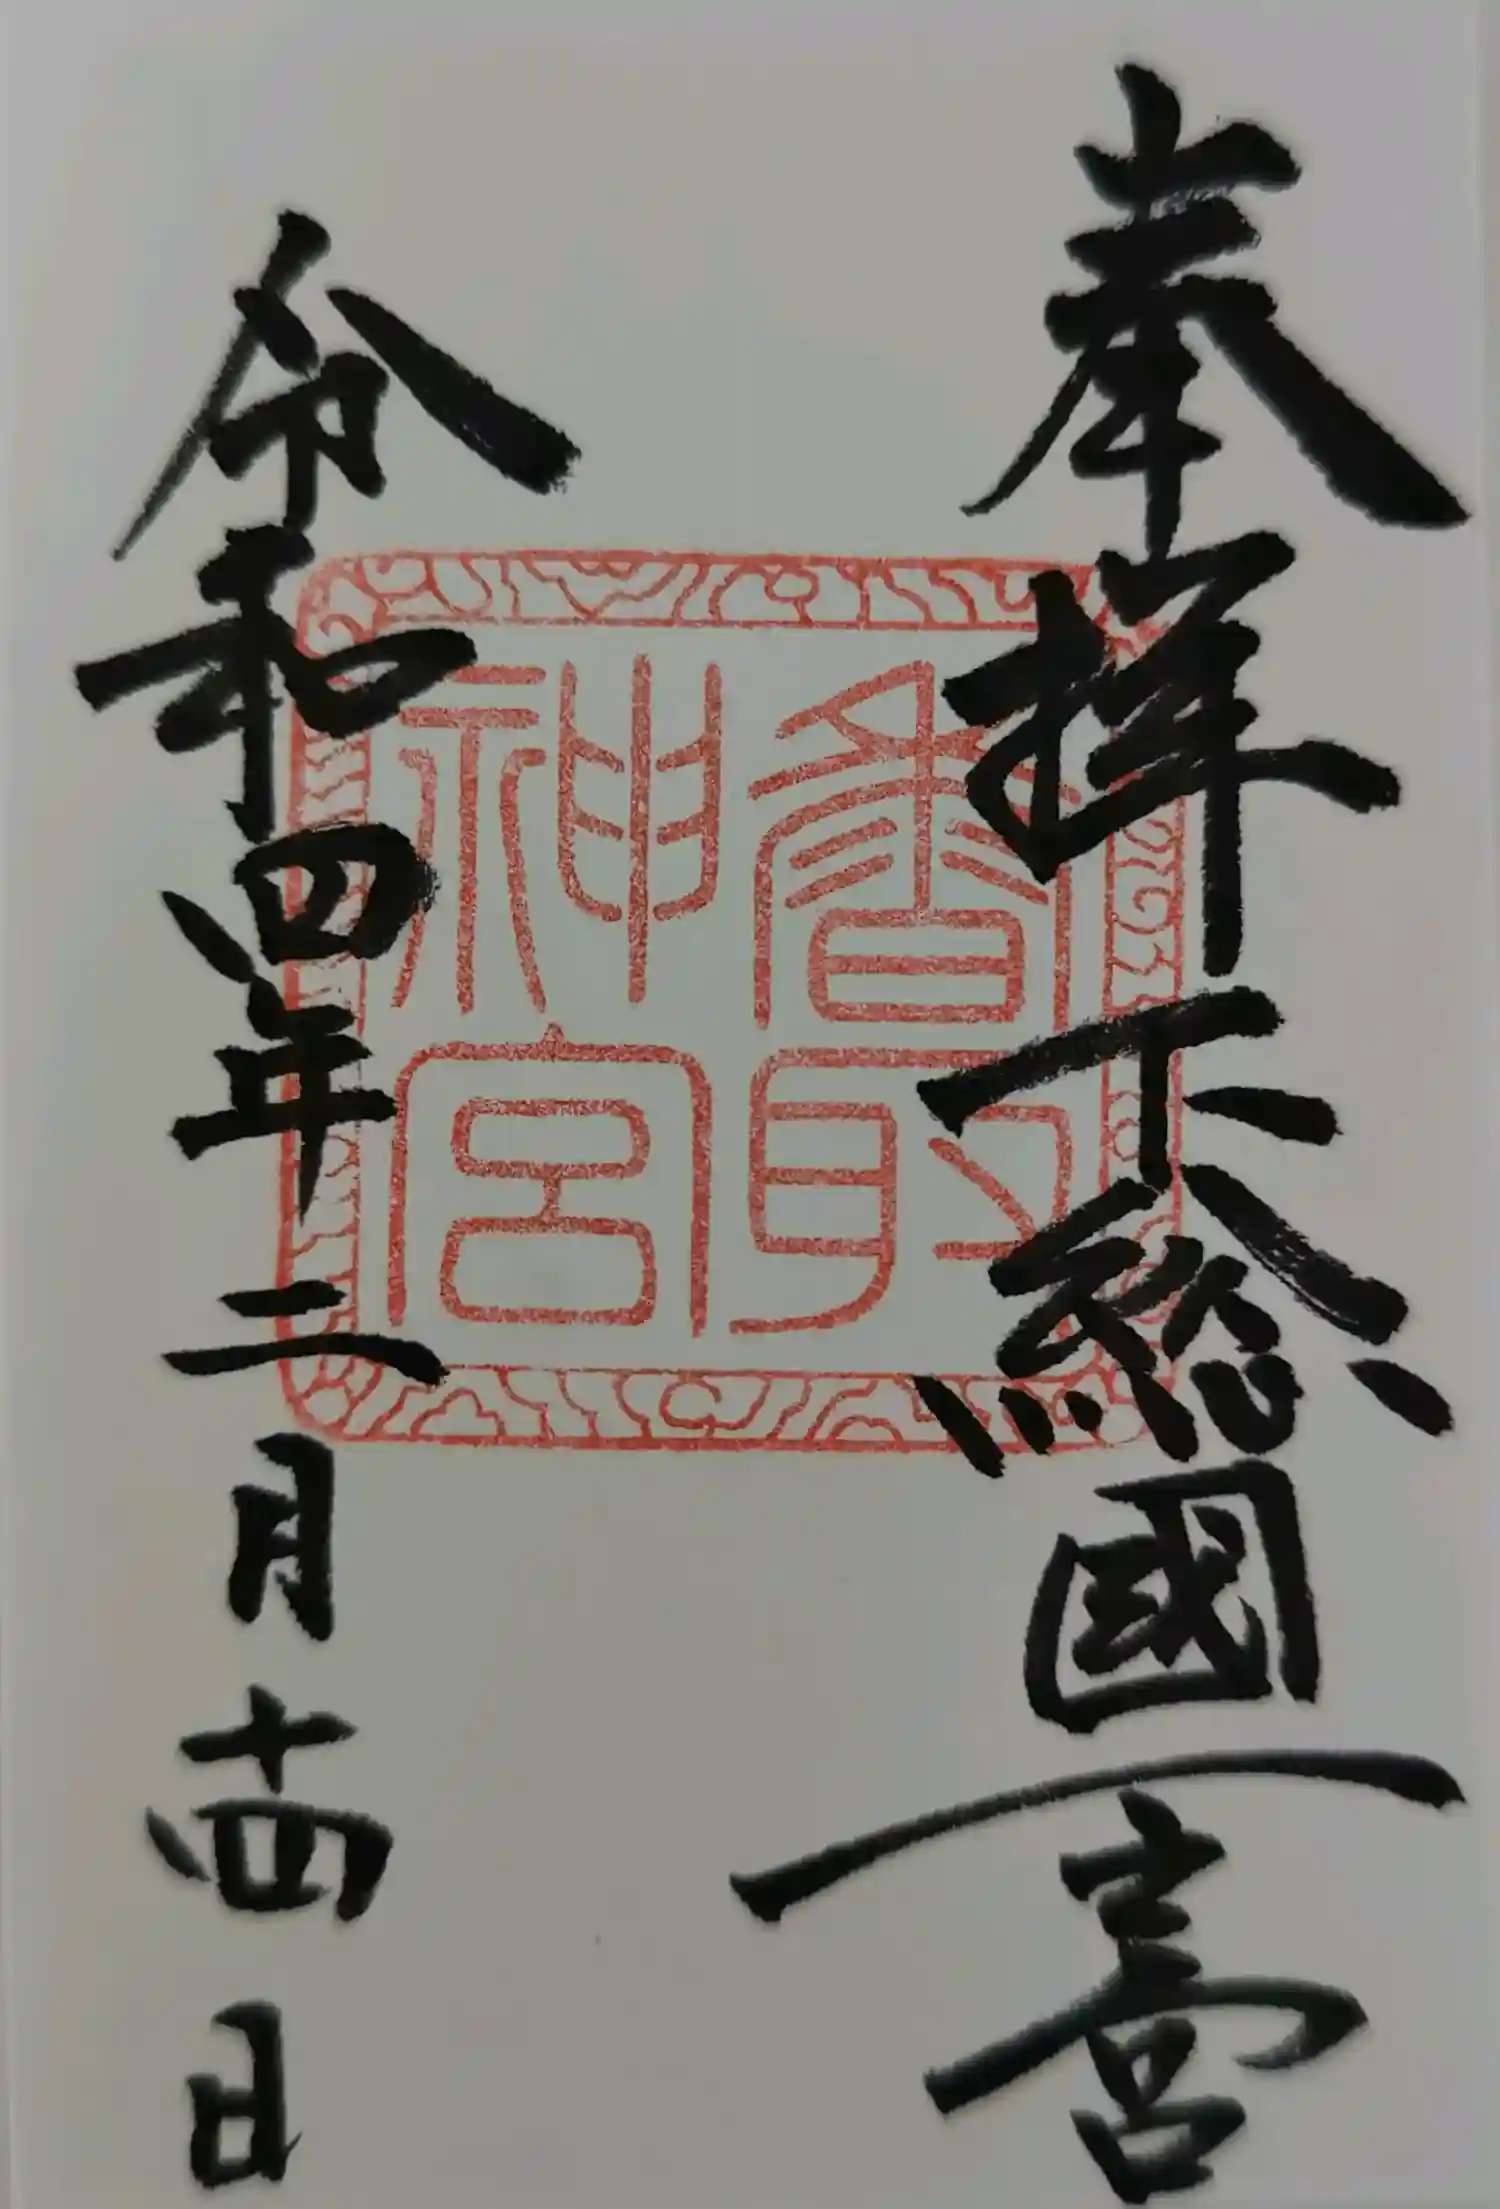 奉拝下総國一宮
香取
神宮
令和四年二月十四日